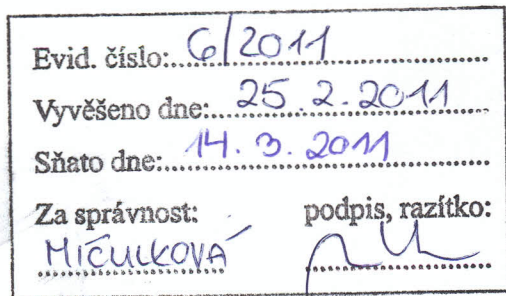 Evid. číslo: 6/2011
Vyvěšeno dne: 25.2.2011
Sňato dne: 14.3.2011
Za správnost: podpis, razítko:
MIČULKOVÁ